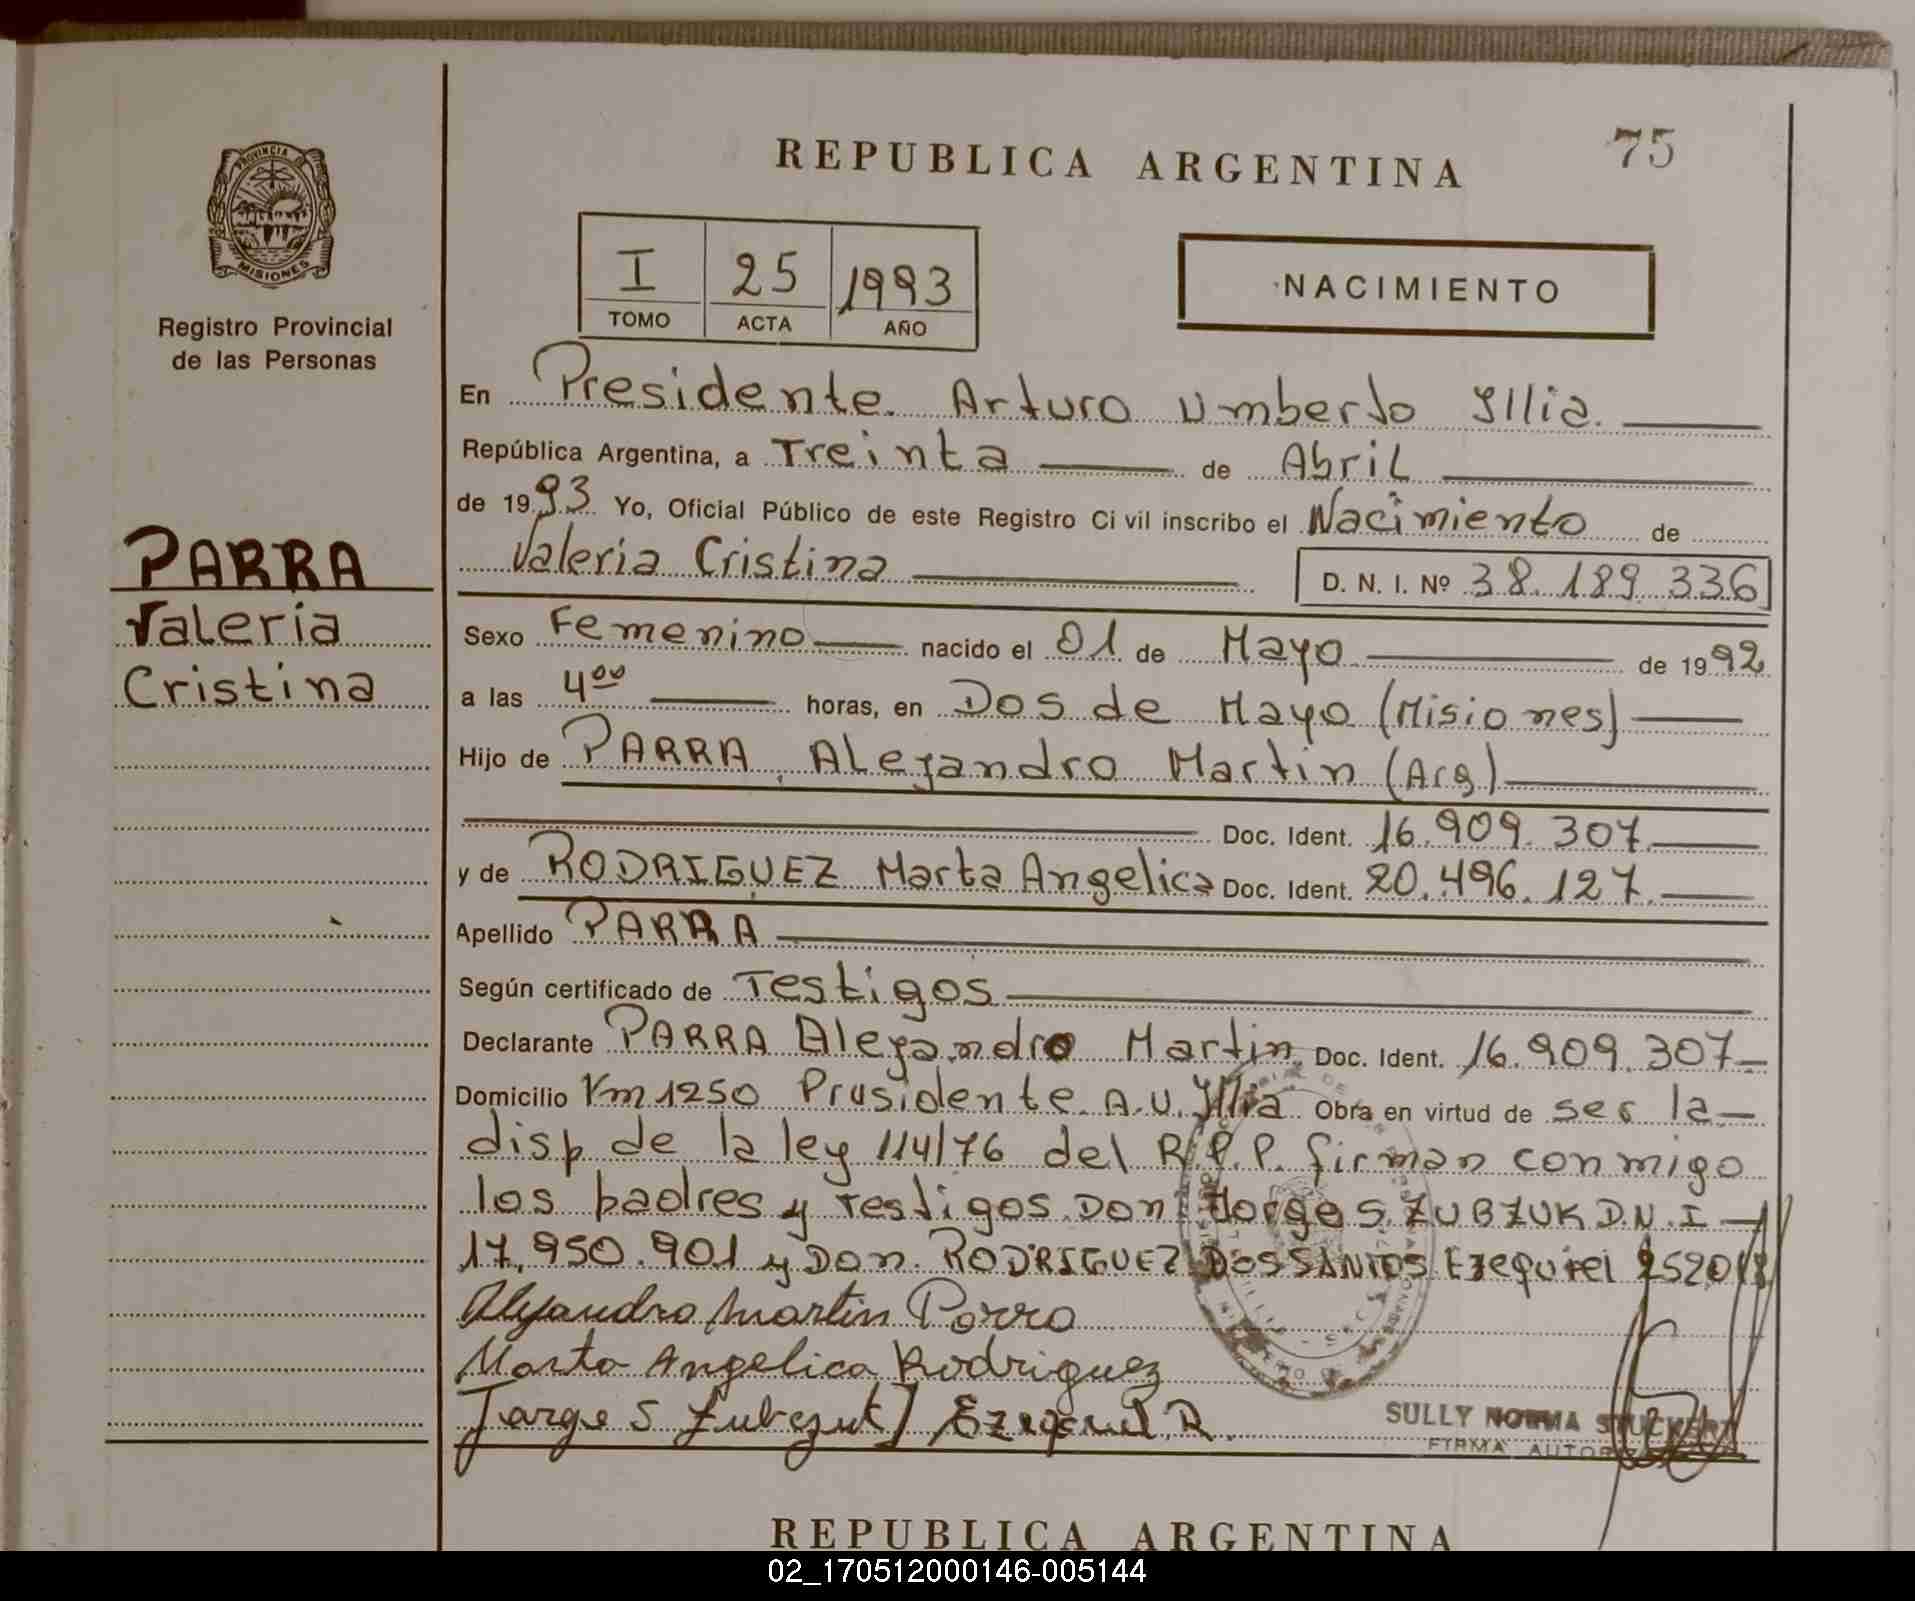 REPUBLICA ARGENTINA
75
PROVINCIA DE
MISIONES
Registro Provincial
de las Personas
I 25 1993
TOMO ACTA AÑO
NACIMIENTO
PARRA
Valeria
Cristina
En Presidente Arturo Umberto Yllia.
República Argentina, a Treinta de Abril
de 1993 Yo, Oficial Público de este Registro Civil inscribo el Nacimiento de
Valeria Cristina D. N. I. Nº 38.189.336
Sexo Femenino nacido el 01 de Mayo de 1992
a las 4⁰⁰ horas, en Dos de Mayo (Misiones)
Hijo de PARRA, Alejandro Martin (Arg)
Doc. Ident. 16.909.307
y de RODRIGUEZ Marta Angelica Doc. Ident. 20.496.127
Apellido PARRA
Según certificado de Testigos
Declarante PARRA Alejandro Martin Doc. Ident. 16.909.307
Domicilio Km 1250 Presidente A.U. Yllia Obra en virtud de ser la
disp de la ley 114/76 del R.P.P. firman conmigo
los padres y testigos Don Jorge S. ZUBZUK D.N.I
17.950.901 y Don RODRIGUEZ DOS SANTOS Ezequiel
Alejandro Martin Parra
Marta Angelica Rodriguez
Jorge S Ezequiel R.
SULLY NORMA STUCKERT
FIRMA
REPUBLICA ARGENTINA
02_170512000146-005144